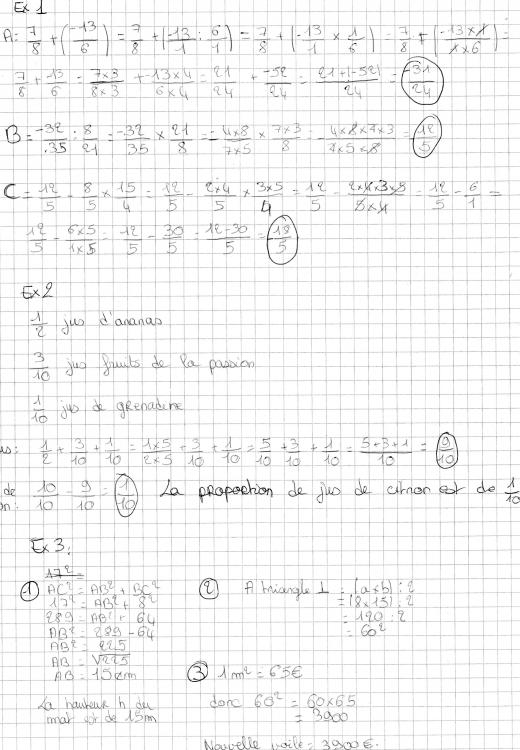 Ex 1
A: 7/8 + (-13/6) = 7/8 + (-13/1 : 6/1) = 7/8 + (-13/1 × 1/6) = 7/8 + (-13×1/1×6) =
7/8 + -13/6 = 7×3/8×3 + -13×4/6×4 = 21/24 + -52/24 = 21+(-52)/24 = -31/24
B = -32/35 : 8/21 = -32/35 × 21/8 = -4×8/7×5 × 7×3/8 = -4×8×7×3/7×5×8 = -12/5
C = 12/5 - 8/5 × 15/4 = 12/5 - 2×4/5 × 3×5/4 = 12/5 - 2×4×3×5/5×4 = 12/5 - 6/1 =
12/5 - 6×5/1×5 = 12/5 - 30/5 = 12-30/5 = -18/5
Ex 2
1/2 jus d'ananas
3/10 jus fruits de la passion
1/10 jus de grenadine
1/2 + 3/10 + 1/10 = 1×5/2×5 + 3/10 + 1/10 = 5/10 + 3/10 + 1/10 = 5+3+1/10 = 9/10
de 10/10 - 9/10 = 1/10 La proportion de jus de citron est de 1/10
Ex 3:
17²
1 AC² = AB² + BC²
17² = AB² + 8²
289 = AB² + 64
AB² = 289 - 64
AB² = 225
AB = √225
AB = 15cm
La hauteur h du
mat est de 15m
2 A triangle ⊥ = (a×b) : 2
= (8×15) : 2
= 120 : 2
= 60²
3 1m² = 65€
donc 60² = 60×65
= 3900
Nouvelle voile = 3900€.